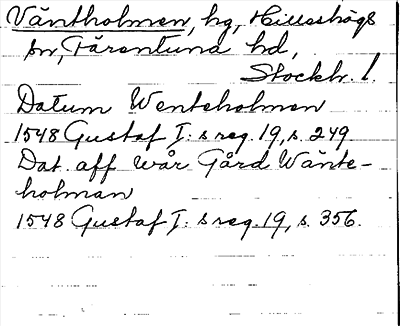 Väntholmen, hg, Hilleshögs
sn, Färentuna hd,
Stockh. l.
Datum Wenteholmen
1548 Gustaf I: s reg. 19, s. 249.
Dat. aff wår Gård Wänte-
holman
1548 Gustaf I: s reg. 19, s. 356.